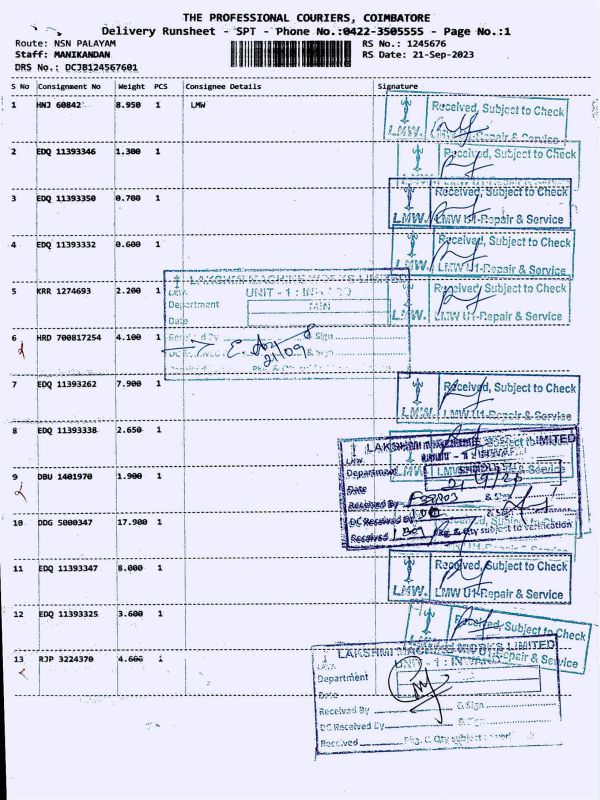 THE PROFESSIONAL COURIERS, COIMBATORE
Delivery Runsheet - SPT - Phone No.:0422-3505555 - Page No.:1
Route: NSN PALAYAM
RS No.: 1245676
Staff: MANIKANDAN
RS Date: 21-Sep-2023
DRS No.: DCJB124567601
S No Consignment No Weight PCS Consignee Details Signature
1 HNJ 60842 8.950 1 LMW
Received, Subject to Check
LMW. U1-Repair & Service
2 EDQ 11393346 1.300 1
Received, Subject to Check
3 EDQ 11393350 0.700 1
LMW. LMW U1-Repair & Service
4 EDQ 11393332 0.600 1
Received, Subject to Check
LMW. LMW U1-Repair & Service
5 KRR 1274693 2.200 1
Received, Subject to Check
LMW. LMW U1-Repair & Service
LAKSHMI MACHINE WORKS LIMITED
UNIT - 1 :
Department
Date
6 HRD 700817254 4.100 1
& Sign
21/09
& Sign
7 EDQ 11393262 7.900 1
Received, Subject to Check
LMW. LMW U1-Repair & Service
8 EDQ 11393338 2.650 1
LAKSHMI MACHINE WORKS LIMITED
UNIT - 1 :
9 DBU 1401970 1.900 1
Department
Date
Received By & Sign
10 DDG 5000347 17.900 1
DC Received By & Sign
Received Pkg. & Qty subject to verification
11 EDQ 11393347 8.000 1
Received, Subject to Check
LMW. LMW U1-Repair & Service
12 EDQ 11393325 3.600 1
Received, Subject to Check
Repair & Service
13 RJP 3224370 4.608 1
LAKSHMI MACHINE WORKS LIMITED
UNIT - 1 : INWARD
Department
Date
Received By & Sign
DC Received By & Sign
Received Pkg. & Qty subject to